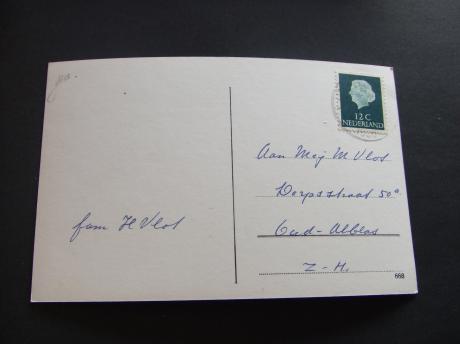 12 C
NEDERLAND
Aan Mej M Vlot
Dorpsstraat 50a
Oud-Alblas
Z-H.
fam H Vlot
668